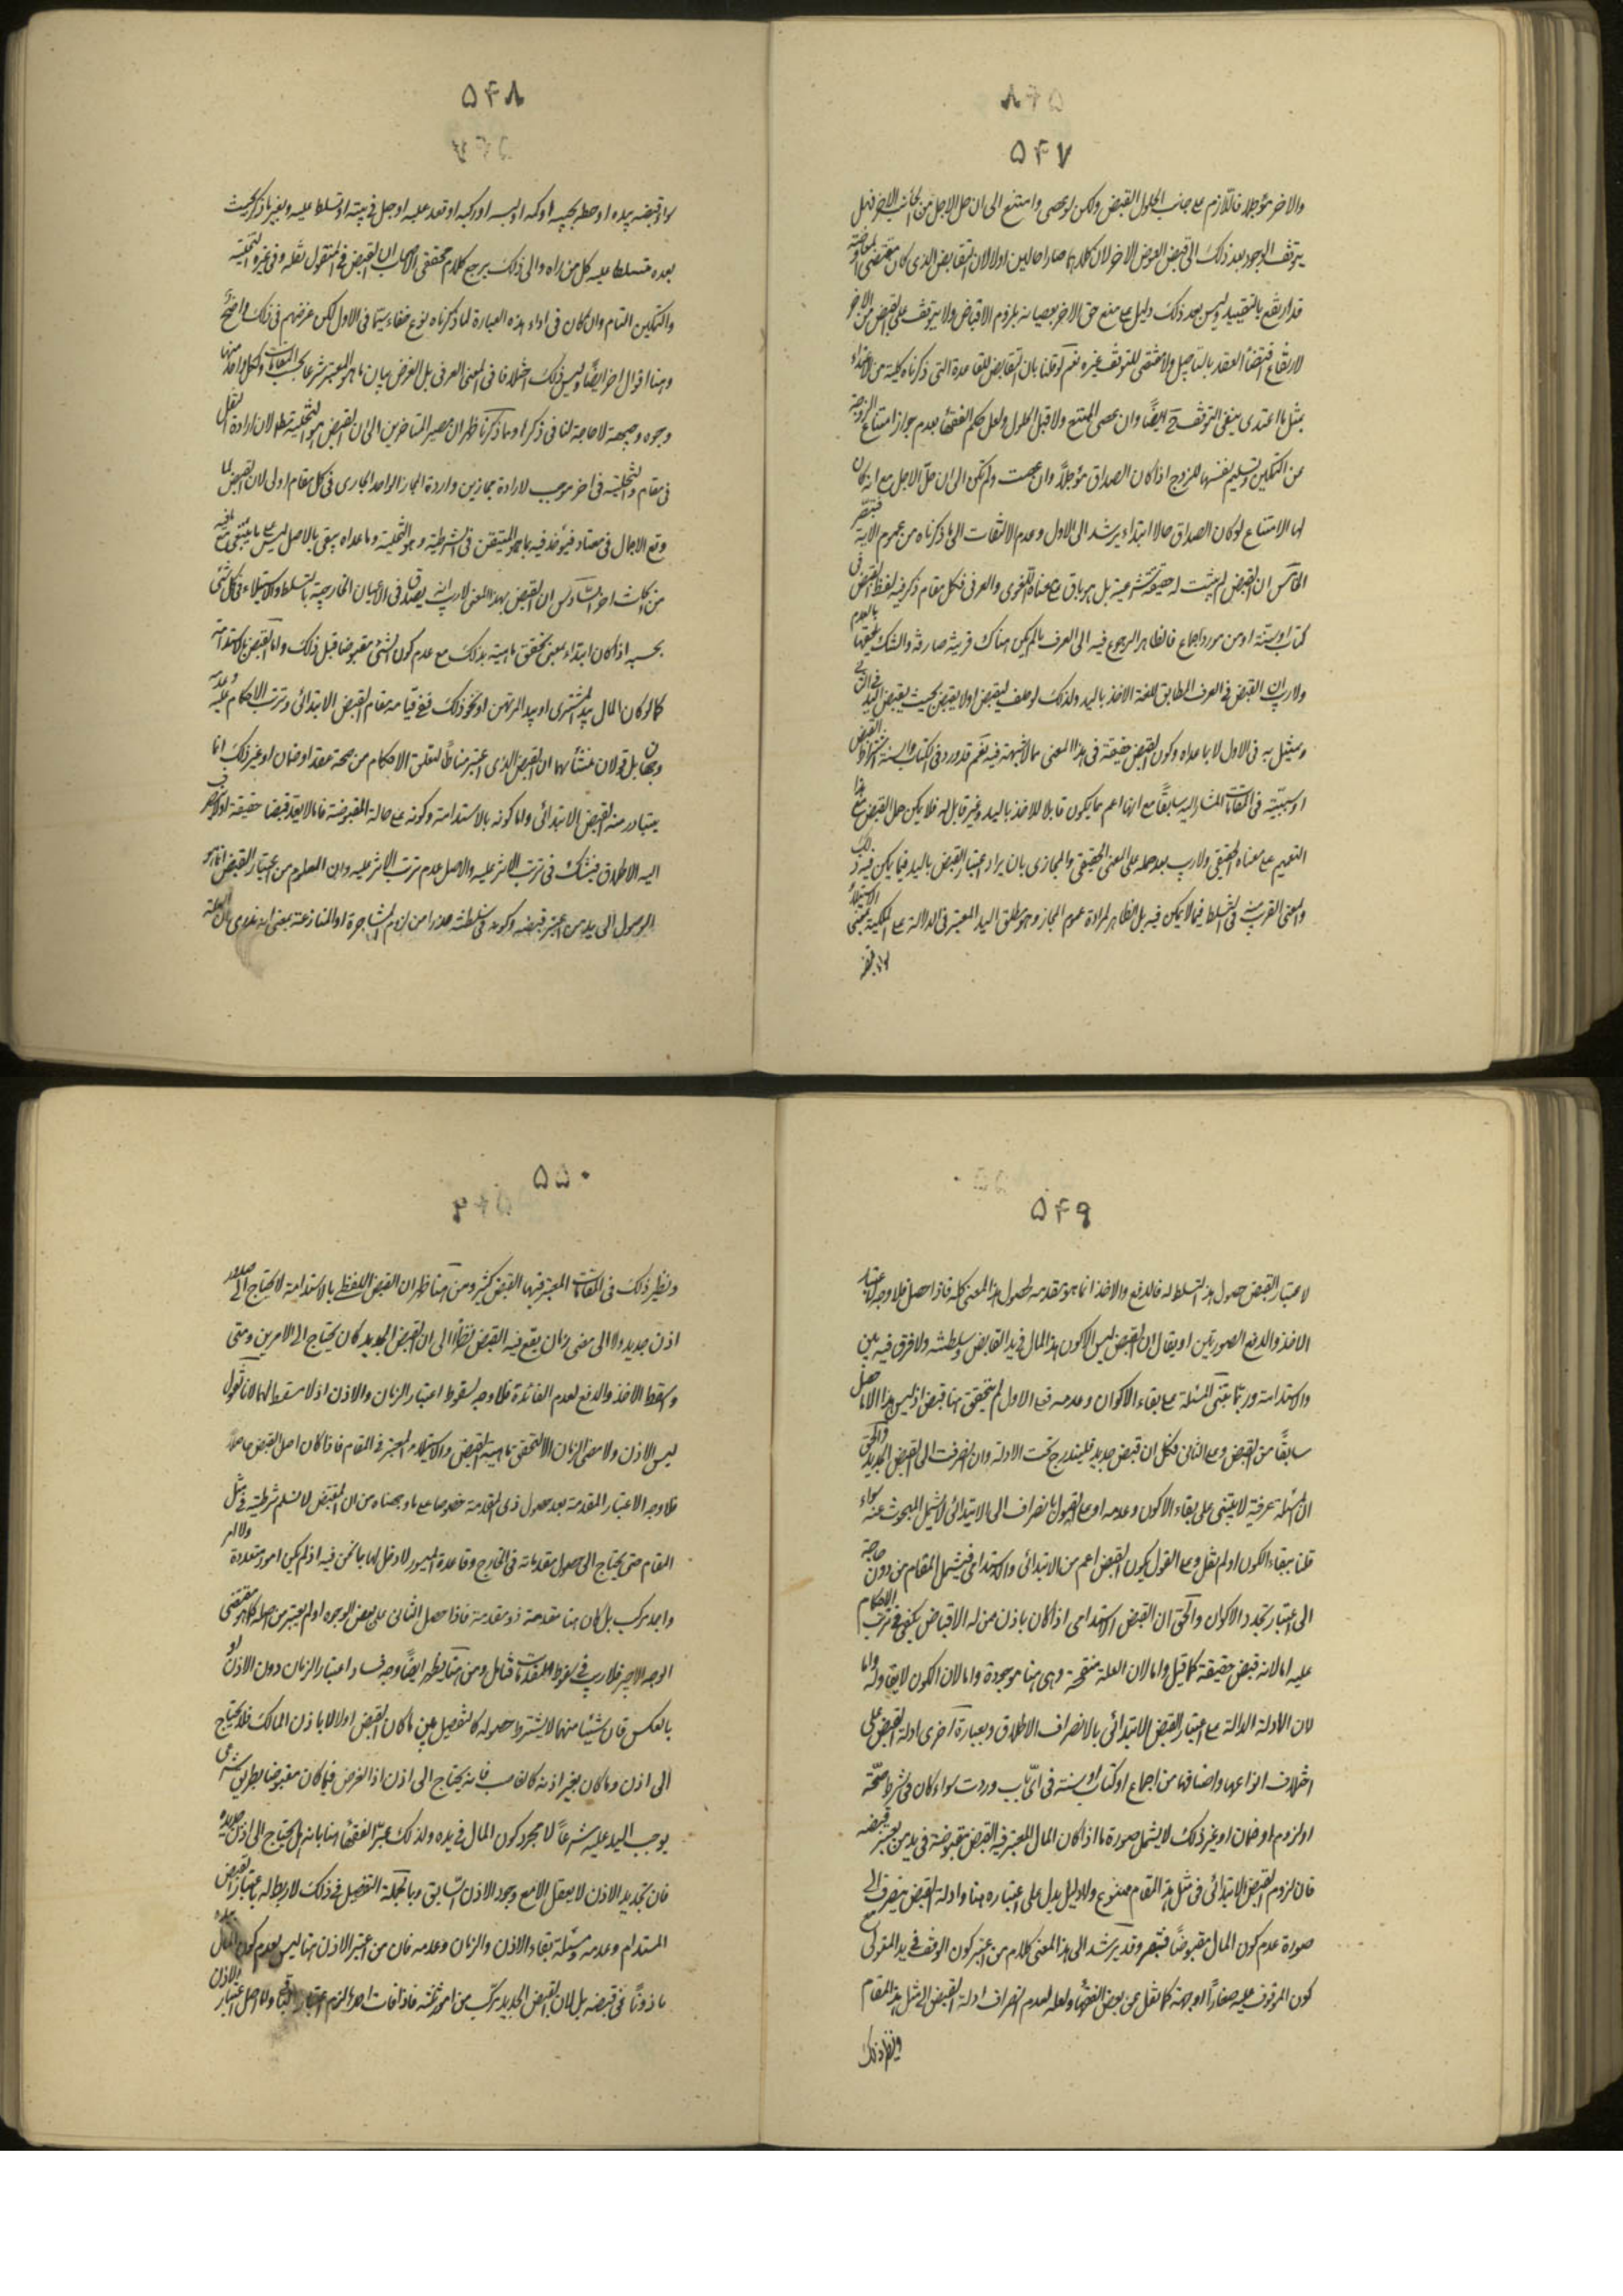 ۵۴۷
والاخر مؤجلا فاللازم على جانب الحلول القبض ولكن لو عصى وامتنع الى ان حل الاجل من الجانب الاخر فهل
يتوقف الوجوب بعد ذلك الى قبض العوض الاخر لان كلا منهما صارا حالين اولا لان التقابض الذى كان مقتضى المعاوضة
قد ارتفع بالتقييد وليس بعد ذلك دليل على منع حق الاخر بعصيانه بلزوم الاقباض ولا يتوقف على القبض من الاخر
لارتفاع اقتضاء العقد بالتاجيل ولا مقتضى للتوقف غيره نعم لو قلنا بان التقابض للقاعدة التى ذكرناه كلية من الاعتداء
بمثل ما اعتدى ينفى التوقف ح ايضا وان عصى الممتنع ولا قبل الحلول ولعل حكم الفقهاء بعدم جواز امتناع الزوجة
عن التمكين وتسليم نفسها للزوج اذا كان الصداق مؤجلا وان عصت ولم تمكن الى ان حل الاجل مع انه كان
لها الامتناع لو كان الصداق حالا ابتداء يرشد الى الاول وعدم الالتفات الى ما ذكرناه من عموم الاية فتبصر
الخامس ان القبض لم يثبت له حقيقة شرعية بل هو باق على معناه اللغوى والعرفى فكل مقام ذكر فيه لفظ القبض فى
كتاب او سنة او من مورد اجماع فالظاهر الرجوع فيه الى العرف ما لم يكن هناك قرينة صارفة والشك يلحقها بالعدم
ولا ريب ان القبض فى العرف المطابق للغة الاخذ باليد ولذلك لو حلف ليقبض اولا يقبض بحيث يقبض اليد فى الثانى
ويمتثل به فى الاول لا بما عداه وكون القبض حقيقة فى هذا المعنى مما لا شبهة فيه نعم قد ورد فى الكتاب والسنة اشتراط القبض
او سببيته فى المقامات المشار اليه سابقا مع انها اعم مما يكون قابلا للاخذ باليد وغير قابل له فلا يمكن حمل القبض مع هذا
التعميم على معناه الحقيقى ولا ريب بعد حمله على المعنى الحقيقى والمجازى بان يراد اعتبار القبض باليد فيما يمكن فيه ذلك
والمعنى القريب فى التسلط فيما لا يمكن فيه بل الظاهر ارادة عموم المجاز وهو مطلق اليد المعتبر فى الدلالة على الملكية بمعنى الاستيلاء
۵۴۸
سواء قبضه بيده او حطه بجيبه او كمه او لبسه او ركبه او قعد عليه او جعل فى بيته او تسلط عليه وبغير ما ذكر بحيث
يعده متسلطا عليه كل من راه والى ذلك يرجع كلام محققى الاصحاب ان القبض فى المنقول نقله وفى غيره التخلية
والتمكين التام وان كان فى اداء هذه العبارة لما ذكرناه نوع خفاء سيما فى الاول لكن غرضهم فى ذلك واضح
وهنا اقوال اخر ايضا وليس ذلك اختلافا فى المعنى العرفى بل الغرض بيان ما هو المعتبر شرعا بحسب المقامات ولكل واحد منها
وجوه وجيهة لا حاجة لنا فى ذكرها وما ذكرنا ظهر ان مصير المتاخرين الى ان القبض هو التخلية مط لان ارادة النقل
فى مقام والتخلية فى اخر موجب لارادة مجازين وارادة المجاز الواحد الجارى فى كل مقام اولى لان القبض لما
وقع الاجمال فى معناه فيؤخذ فيه بما هو المتيقن فى الشرطية وهو التخلية وما عداه يبقى بالاصل ليس على ما ينبغى مع ما فيه
من جهات اخر السادس ان القبض بهذا المعنى لا ريب انه يصدق فى الاعيان الخارجية بالتسلط والاستيلاء فى كل شئ
بحسبه اذا كان ابتداء بمعنى تحقق ماهيته بذلك مع عدم كون الشئ مقبوضا قبل ذلك واما القبض بالاستدامة
كما لو كان المال بيد المشترى او بيد المرتهن او نحو ذلك ففى قيامه مقام القبض الابتدائى وترتب الاحكام عليه وعدمه
وجهان بل قولان منشأهما ان القبض الذى اعتبر مناطا لتعلق الاحكام من صحة عقد او ضمان او غير ذلك انما
يتبادر منه القبض الابتدائى واما كونه بالاستدامة وكونه على حالة المقبوضة فاما لا يعد قبضا حقيقة او لا ينصرف
اليه الاطلاق فيشك فى ترتب الاثر عليه والاصل عدم ترتب الاثر عليه وان المعلوم من اعتبار القبض انما هو
الوصول الى يد من اعتبر قبضه وكونه فى سلطنته حذرا من لزوم المشاجرة او المنازعة بمعنى انه ندرى بان العلة
۵۴۹
لاعتبار القبض حصول هذه التسلط له فالدفع والاخذ انما هو مقدمة لحصول هذا المعنى كله فاذا حصل فلا وجه لاعتبار
الاخذ والدفع الصوريين او يقال ان القبض ليس الا كون هذا المال فى يد القابض وسلطنته ولا فرق فيه بين
والاستدامة وربما يبتنى المسئلة على بقاء الاكوان وعدمه فعلى الاول لم يتحقق هنا قبض اذ ليس هذا الا ما حصل
سابقا من القبض وعلى الثانى فكل ان قبض جديد فليندرج تحت الادلة وان انصرفت الى القبض الجديد والحق
ان المسئلة عرفية لا يبتنى على بقاء الاكون وعدمه او على القول بانصراف الى الابتدائى لا يشمل المبحوث عنه سواء
قلنا ببقاء الكون او لم نقل وعلى القول بكون القبض اعم من الابتدائى والاستدامى فيشمل المقام من دون حاجة
الى اعتبار تجدد الاكوان والحق ان القبض الاستدامى اذا كان باذن من له الاقباض يكفى فى ترتب الاحكام
عليه اما لانه قبض حقيقة كما قيل واما لان العلة منقحة وهى هنا موجودة واما لان الكون لا بقاء له واما
لان الادلة الدالة على اعتبار القبض الابتدائى بالانصراف الاطلاق وبعبارة اخرى ادلة القبض على
اختلاف انواعها واصنافها من اجماع او كتاب او سنة فى اى باب وردت سواء كان فى شرط صحة
او لزوم او ضمان او غير ذلك لا يشمل صورة ما اذا كان المال المعتبر فيه القبض مقبوضة فى يد من يعتبر قبضه
فان لزوم القبض الابتدائى فى مثل هذا المقام ممنوع ولا دليل يدل على اعتباره هنا وادلة القبض ينصرف الى
صورة عدم كون المال مقبوضا فتبصر وقد يرشد الى هذا المعنى كلام من اعتبر كون الوقف فى يد المتولى مع
كون الموقوف عليه صغارا او جهة كما نقل عن بعض الفقهاء ولعله لعدم انصراف ادلة القبض الى مثل هذا المقام
ونظير ذلك
۵۵۰
ونظير ذلك فى المقامات المعتبر فيها القبض كثير ومن هنا ظهر ان القبض اللفظى بالاستدامة لا يحتاج الى
اذن جديد ولا الى مضى زمان يقع فيه القبض نظرا الى ان القبض الجديد كان يحتاج الى الامرين ومتى
وسقط الاخذ والدفع لعدم الفائدة فلا وجه لسقوط اعتبار الزمان والاذن اذ لا مسقط لهما لانا نقول
ليس الاذن ولا مضى الزمان الا لتحقق ماهية القبض والاستيلاء المعتبر فى المقام فاذا كان اصل القبض حاصلا
فلا وجه الاعتبار المقدمة بعد حصول ذى المقدمة خصوصا على ما وجهناه من ان القبض لا نسلم شرطيته فى مثل
المقام حتى يحتاج الى حصول مقدماته فى الخارج وقاعدة الميسور لا دخل لها بما نحن فيه اذ لم يكن امور متعددة ولا امر
واحد مركب بل كان هنا مقدمة ذو مقدمة فاذا حصل الثانى على بعض الوجوه او لم يعتبر من اصله كما هو مقتضى
الوجه الاخير فلا ريب فى سقوط المقدمات فتامل ومن هنا يظهر ايضا وجه فساد اعتبار الزمان دون الاذن او
بالعكس فان شيئا منهما لا يشترط حصوله كالتفصيل بين ما كان القبض اولا لا باذن المالك فلا يحتاج
الى اذن وما كان بغير اذنه كالغاصب فانه يحتاج الى اذن اذا الغرض فيما كان مقبوضا بطريق شرعى
يوجب اليد عليه شرعا لا مجرد كون المال فى يده ولذلك عبر الفقهاء هنا بانه هل يحتاج الى اذن جديد
فان تجديد الاذن لا يعقل الا مع وجود الاذن السابق وبالجملة التفصيل فى ذلك لا ربط له باعتبار القبض
المستدام وعدمه ومسئلة بقاء الاذن والزمان وعدمه فان من اعتبر الاذن هنا ليس لعدم كون المال بيده
ماذونا فى قبضه بل لان القبض الجديد مركب من امور ثلثة فاذا فات احدها لزم اعتبار